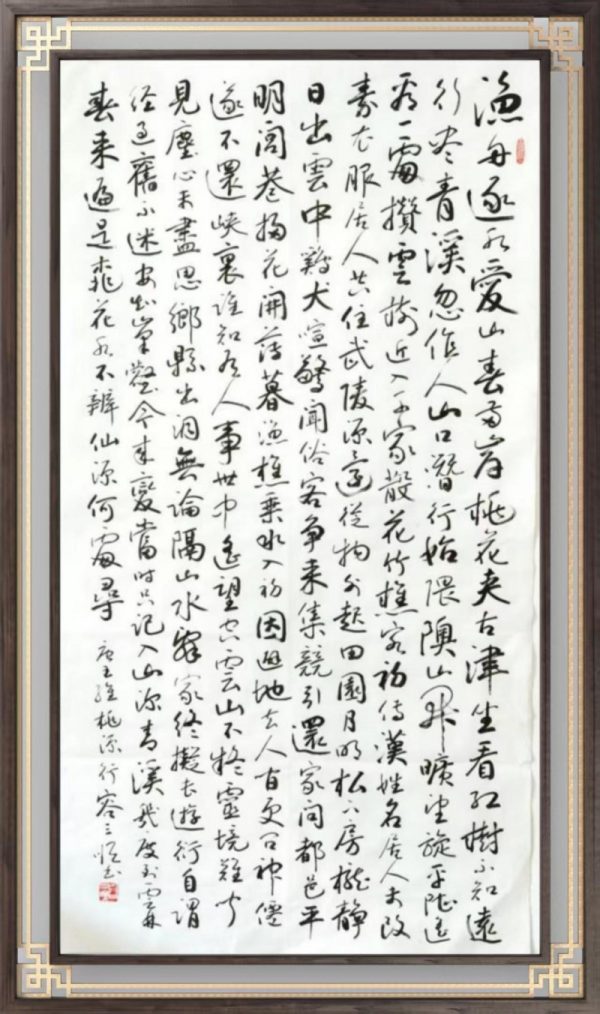 漁舟逐水愛山春兩岸桃花夾古津坐看紅樹不知遠
行盡青溪忽值人山口潛行始隈隩山開曠望旋平陸遙
看一處攢雲樹近入千家散花竹樵客初傳漢姓名居人未改
秦衣服居人共住武陵源還從物外起田園月明松下房櫳靜
日出雲中鷄犬喧驚聞俗客爭来集競引還家問都邑平
明閭巷掃花開薄暮漁樵乘水入初因避地去人間更問神僊
遂不還峽裏誰知有人事世中遙望空雲山不疑靈境難聞
見塵心未盡思鄉縣出洞無論隔山水辭家終擬長遊衍自謂
経過舊不迷安知峯壑今来變當時只記入山深青溪幾度到雲林
春来遍是桃花水不辨仙源何處尋
唐王維桃源行